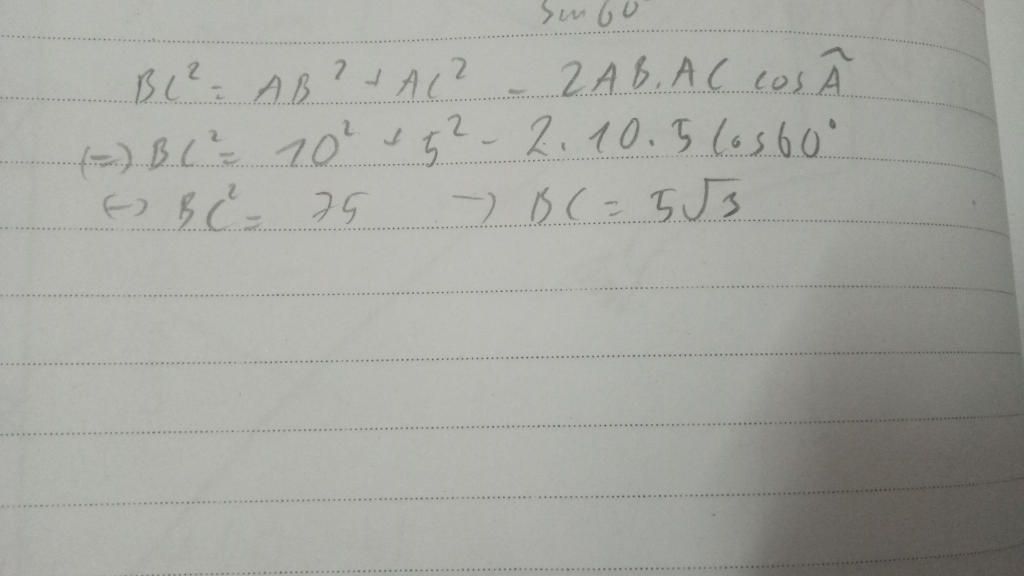 sin 60°
BC² = AB² + AC² - 2AB.AC cos Â
(=) BC² = 10² + 5² - 2.10.5 cos60°
(-) BC² = 75 -) BC = 5√3